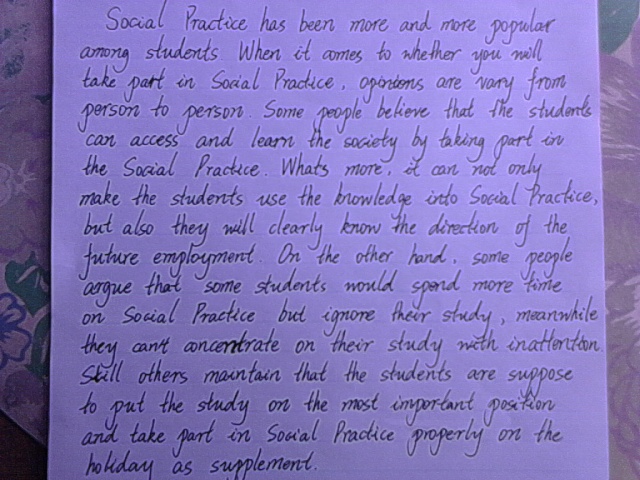 Social Practice has been more and more popular
among students. When it comes to whether you will
take part in Social Practice, opinions are vary from
person to person. Some people believe that the students
can access and learn the society by taking part in
the Social Practice. Whats more, it can not only
make the students use the knowledge into Social Practice,
but also they will clearly know the direction of the
future employment. On the other hand, some people
argue that some students would spend more time
on Social Practice but ignore their study, meanwhile
they can't concentrate on their study with inattention.
Still others maintain that the students are suppose
to put the study on the most important position
and take part in Social Practice properly on the
holiday as supplement.